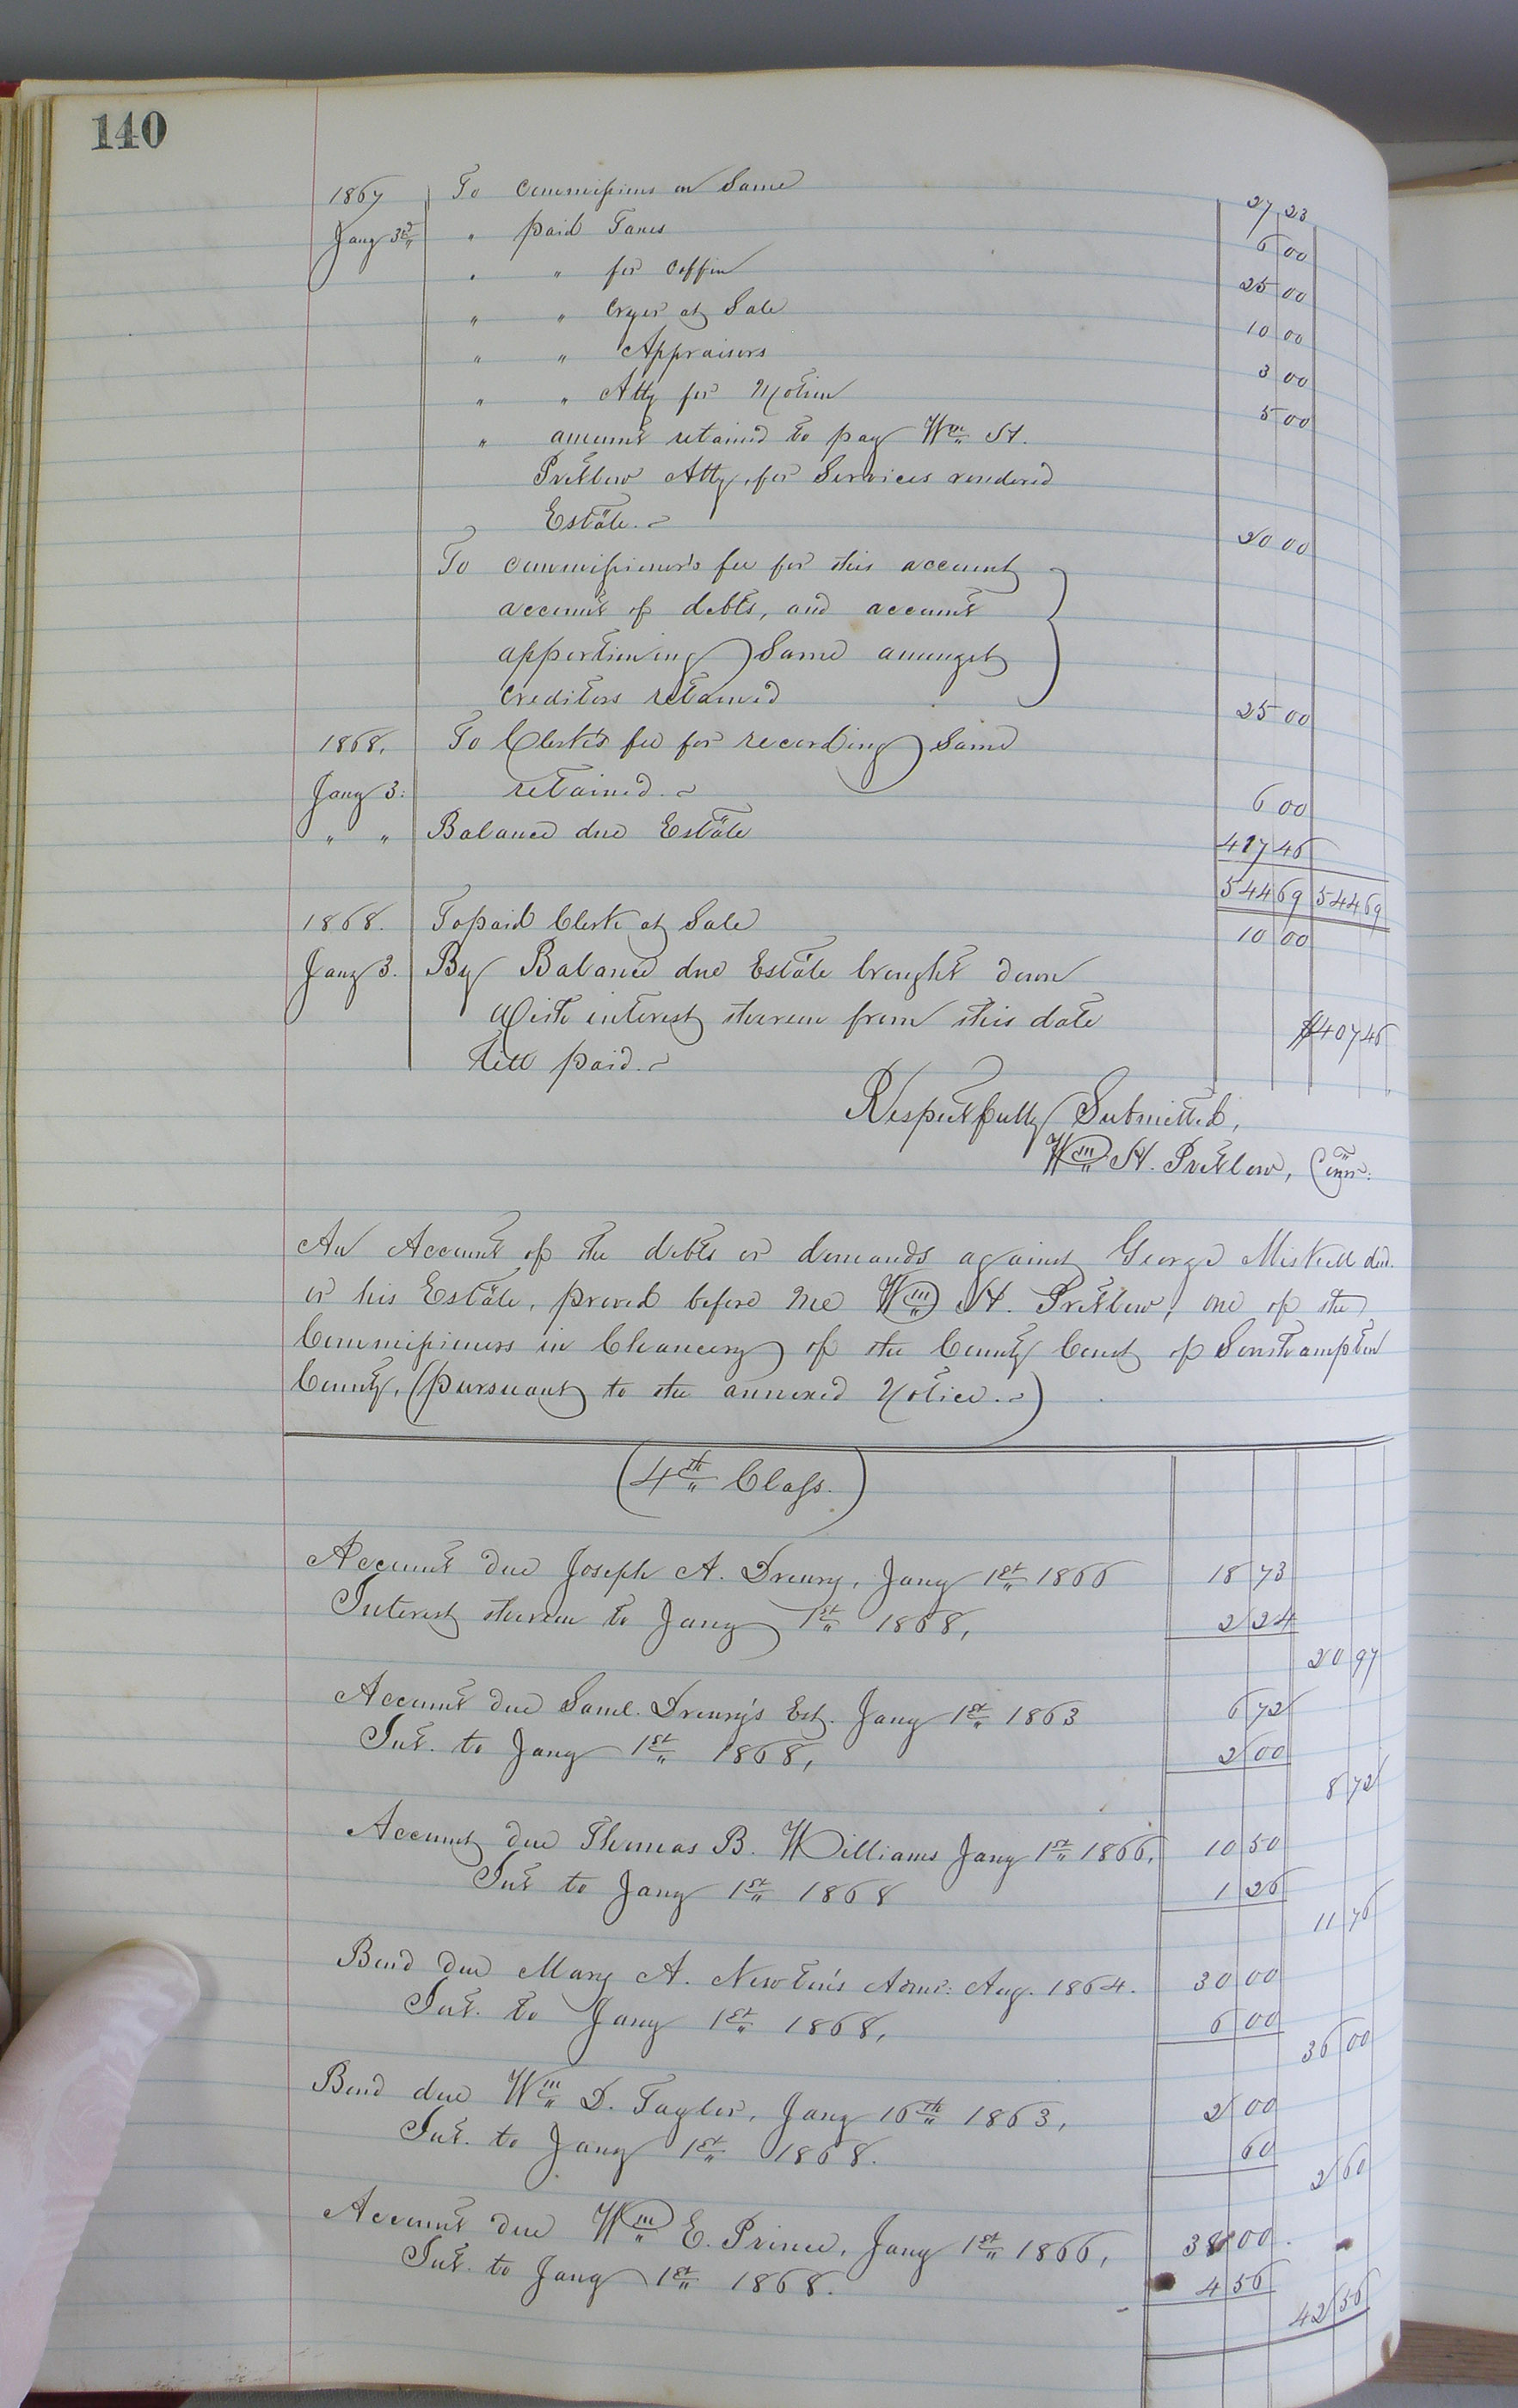 140
1867 To Commissions on Same 27 23
Jany 3d " paid Taxes 6 00
" " for Coffin 25 00
" " Cryer at Sale 10 00
" " Appraisers 3 00
" " Atty for Motion 5 00
" amount retained to pay Wm H.
Pretlow Atty, for Services rendered
Estate. 20 00
To Commissioner's fee for this account
account of debts, and account
apportioning Same amongst
Creditors retained 25 00
1868, To Clerk's fee for recording Same
Jany 3: retained. 6 00
" " Balance due Estate 417 46
544 69 544 69
1868. To paid Clerk at Sale 10 00
Jany 3. By Balance due Estate brought down
With interest thereon from this date
till paid. $407 46
Respectfully Submitted,
Wm H. Pretlow, Comr:
An Account of the debts or demands against George Miskell decd.
or his Estate, proved before me Wm H. Pretlow, one of the
Commissioners in Chancery of the County Court of Southampton
County, (pursuant to the annexed Notice.)
(4th Class.)
Account due Joseph A. Dreury, Jany 1st 1866 18 73
Interest thereon to Jany 1st 1868, 2 24
20 97
Account due Saml. Dreury's Est. Jany 1st 1863 6 72
Int. to Jany 1st 1868, 2 00
8 72
Account due Thomas B. Williams Jany 1st 1866, 10 50
Int to Jany 1st 1868 1 26
11 76
Bond due Mary A. Newton's Admr: Aug. 1864. 30 00
Int. to Jany 1st 1868, 6 00
36 00
Bond due Wm D. Taylor, Jany 16th 1863, 2 00
Int. to Jany 1st 1868. 60
2 60
Account due Wm E. Prince, Jany 1st 1866, 38 00
Int. to Jany 1st 1868. 4 56
42 56